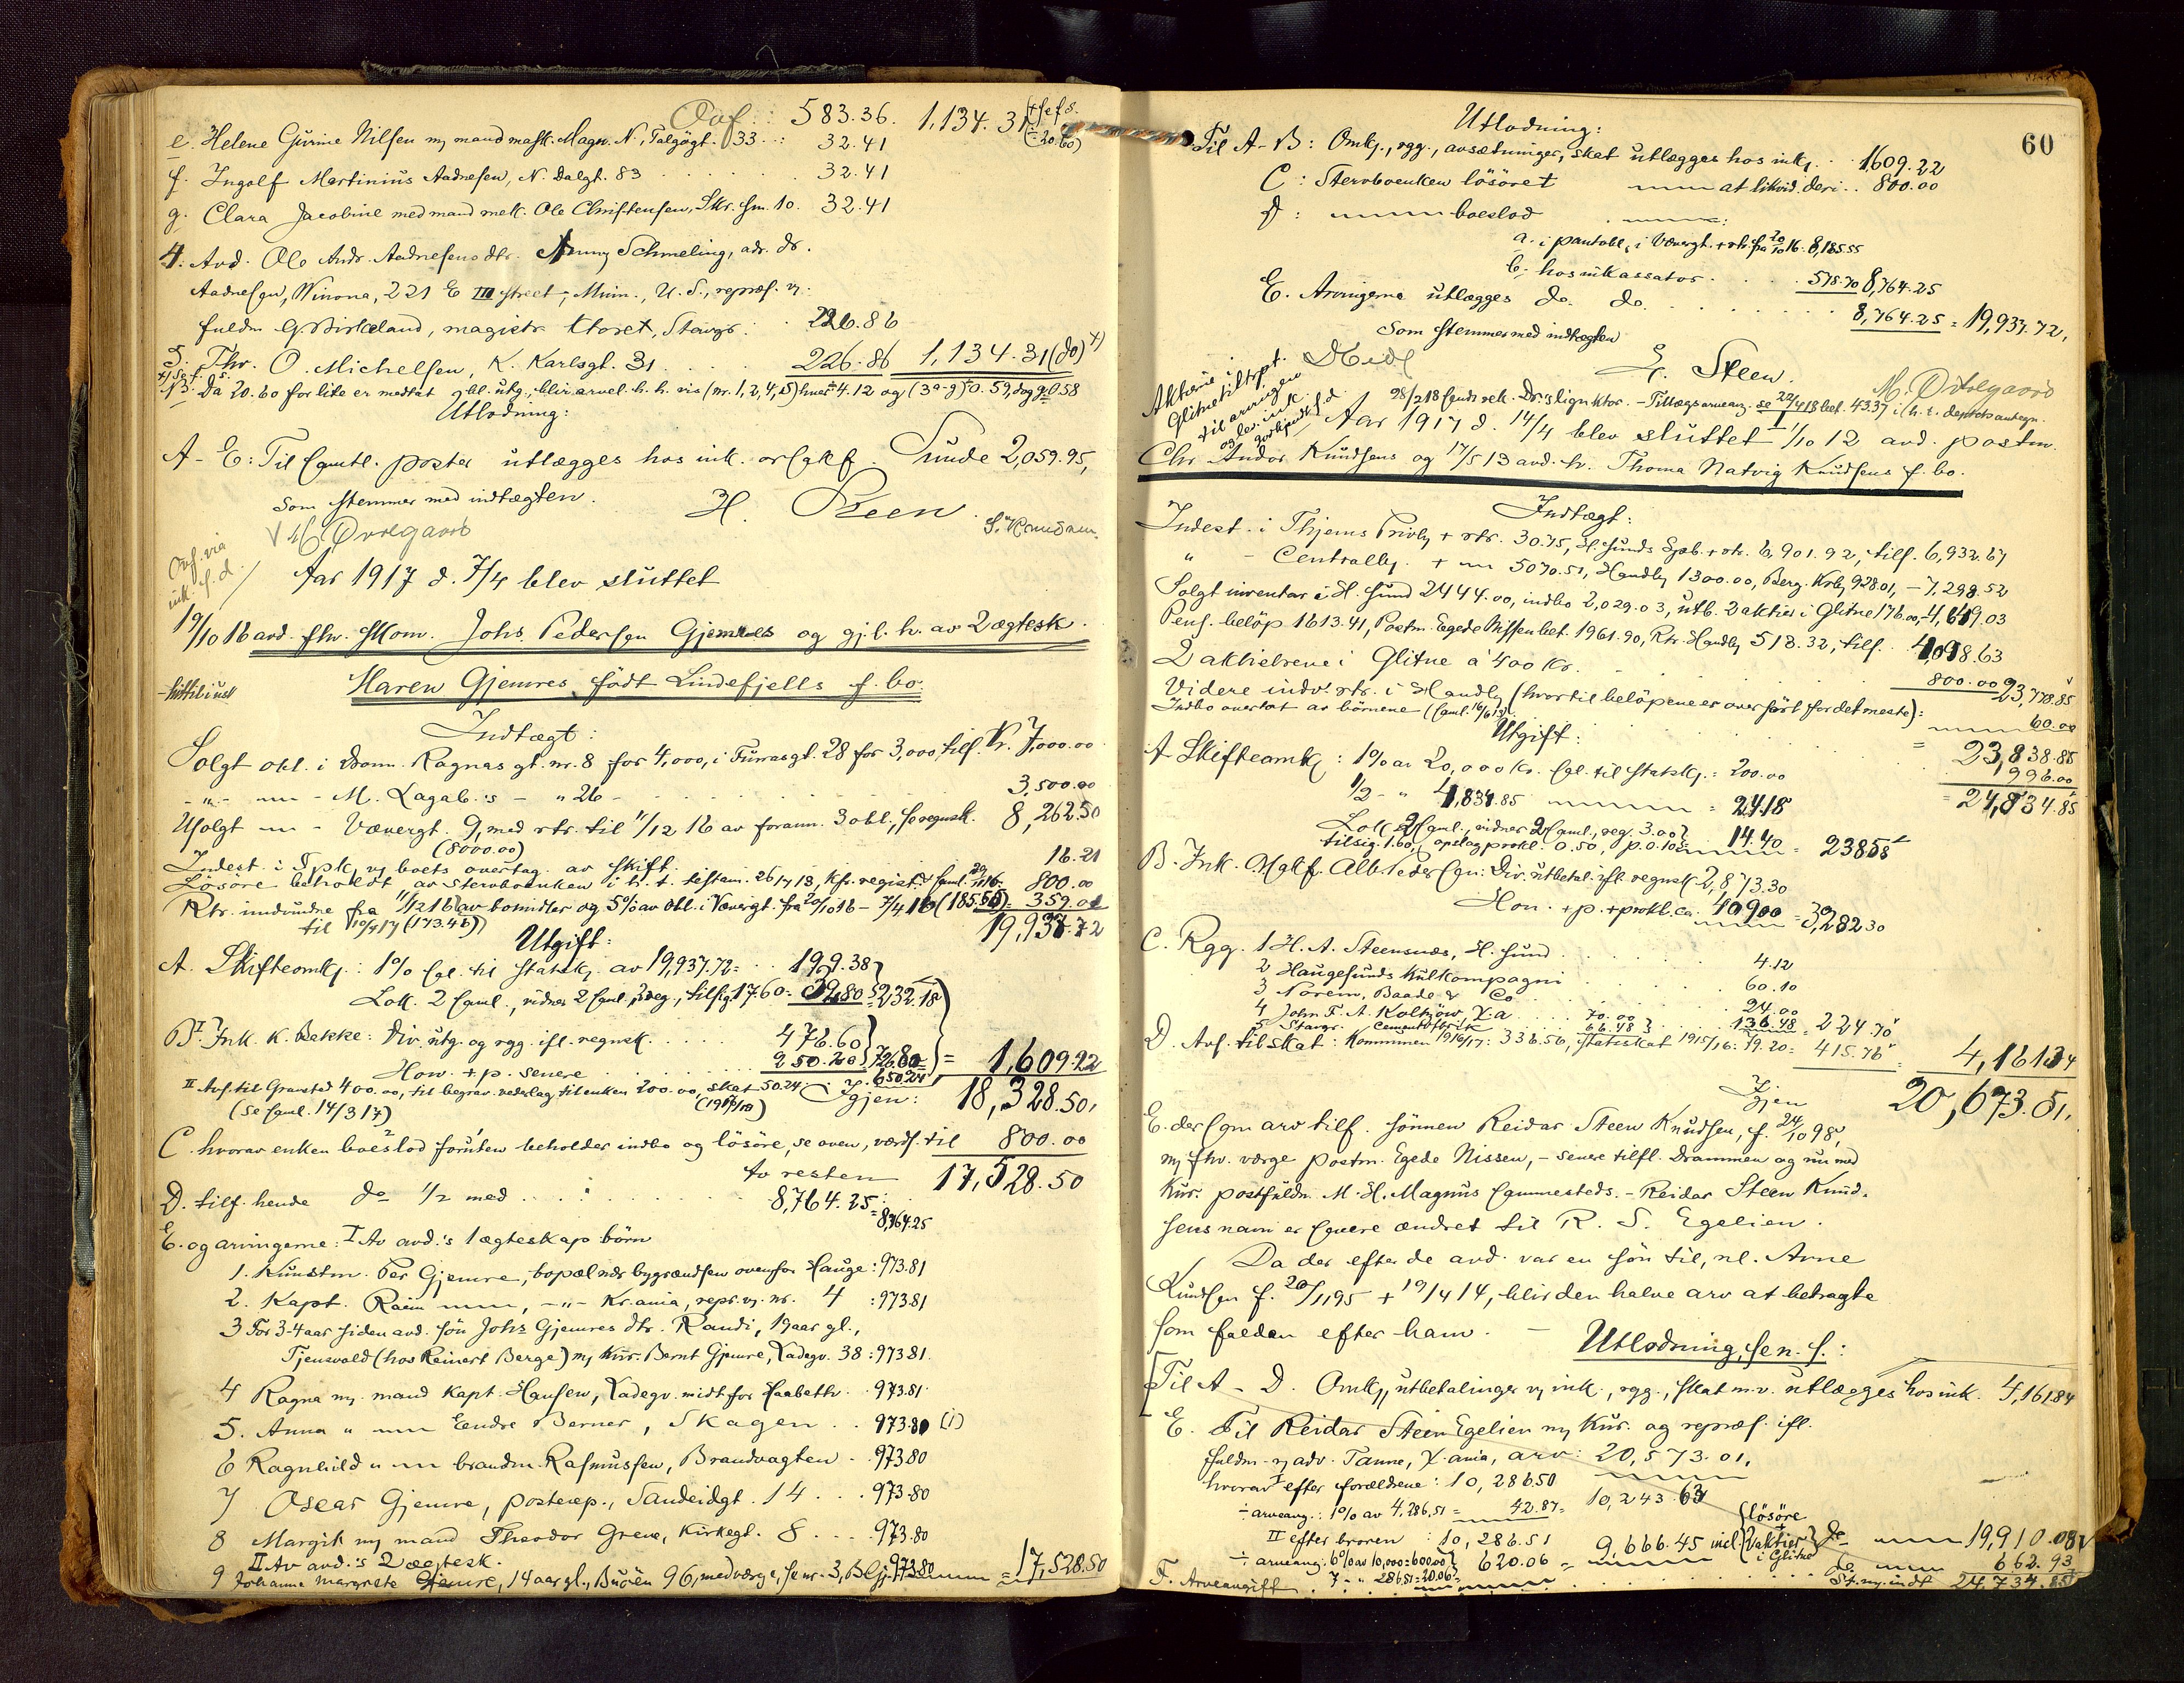 Ovf: 583.36. 1,134.31
e. Helene Gurine Nilsen m/ mand mask. Magn. N., Talgøgt. 33 . . : 32.41
f. Ingolf Martinius Aadnesen, N. Dalgt. 83 . . . . 32.41
g. Clara Jacobine med mand mek. Ole Christensen, 10. 32.41
4. Avd. Ole Andr. Aadnesens dtr. Anny Schmeling, adr. dr.
Aadnesen, Winona, 221 E III street, Minn., U.S., repræs. v.
fuldm. Birkeland, magistr. Stavgr: 226.86
5. Thv. O. Michelsen, K. Karlsgt. 31 . . . . 226.86 1,134.31 (do)
NB. Da 20.60 for lite er medtat
Utlodning:
A-E: Til samtl. poster utlægges hos ink. Sunde 2,059.95,
som stemmer med indtægten. H. Steen
Aar 1917 d. 7/4 blev sluttet
19/10 16 avd. Johs. Pedersen Gjemres og gj.l. h. av 2 ægtesk.
Haren Gjemres født Lindefjells f. bo.
Indtægt:
Solgt obl. i Dronn. Ragnas gt. nr. 8 for 4,000, i Furrasgt. 28 for 3,000, tils. Kr. 7,000.00
- " - - M. Lagab.'s - " 26 - . . . . 3,500.00
Usolgt - Vævergt. 9, med rtr. til 11/12 16 av forann. 3 obl., se regnsk. 8,262.50
(8000.00)
Indest. i Spk. v/ boets overtag. av skift. 16.21
Løsøre beholdt av stervboenken i h. t. testam. 800.00
Rtr. indvundne fra 11/12 16 av bomidler og 5% av obl. i Vævergt. fra 20/10 16 - 7/4 (185.55) = 359.01
til 10/4 17 (173.46) 19,937.72
Utgift:
A. Skifteomk.: 1% sgl. til statsk. av 19,937.72 = . . 199.38
Lok. 2 saml., vidner 2 saml., tilsig. 17.60 = 32.80 = 232.18
B. I. Ink. K. Bekke: Div. utg. og rgg. ifl. regnsk. . . . . 476.60
Hon. + p. senere . . . 250.20 726.80 = 1,609.22
II Avs. til Gravsted 400.00, til begrav. vederlag til enken 200.00, skat 50.24 : 650.24
(se saml. 14/3 17) Igjen: 18,328.50,
C. hvorav enken boeslod foruten beholder indbo og løsøre, se oven, værdf. til 800.00
Av resten 17,528.50
D. tilf. hende do 1/2 med . . : 8,764.25 = 8,764.25
E. og arvingerne: I Av avd.'s 1 ægteskap børn
1. Kunstm. Per Gjemre, bopæl nær bygrændsen ovenfor Hauge : 973.81
2. Kapt. - " - Kr.ania, repr. v. nr. 4 : 973.81
3 For 3-4 aar siden avd. søn Johs Gjemres dtr. Randi, 19 aar gl.,
Tjensvold (hos Reinert Berge) m/ kur. Bernt Gjemre, Ladegv. 38 : 973.81.
4 Ragna m. mand Kapt. Hansen, Ladegv. midt for Haabeth . . 973.81
5. Anna " Eendre Berner, Skagen . . 973.80 (1)
6 Ragnhild " brandm. Rasmussen, Brandvagten . . 973.80
7 Oscar Gjemre, postexp., Sandeidgt. 14 . . . 973.80
8 Margit m/ mand Theodor Grene, Kirkegt. 8 . . . 973.80
II Av avd.'s 2 ægtesk.
9 Johanne Margrete Gjemre, 14 aar gl., Buøen 96, med værge, se nr. 3, B. Gj. 973.80 = 17,528.50
60
Utlodning:
Til A-B: Omk., rgg., avsætninger, skat utlægges hos ink. . . 1609.22
C: Stervboenken løsøret at likvid. deri . . 800.00
D: boeslod
a. i pantobl. i Vævergt. + rtr. fra 20/10 16. 8,185.55
b. hos inkassator . . . 578.70 8,764.25
E. Arvingerne utlægges do. do. . . . . 8,764.25 = 19,937.72,
Som stemmer med indtægten
H. Steen.
Aar 1917 d. 14/4 blev sluttet 1/10 12 avd. postm.
Chr. Andor Knudsens og 17/5 13 avd. h. Thoma Natvig Knudsens f. bo.
Indtægt:
Indest. i Thjems Privbk + rtr. 30.75, H.sunds Spb. + rtr. 6,901.92, tils. 6,932.67
" - Centralbk. + 5070.51, Handbk 1300.00, Berg. Krbk 928.01, - 7,298.52
Solgt inventar i H.sund 2444.00, indbo 2,029.03, utb. 2 aktier i Glitne 176.00, - 4,649.03
Pens. beløp 1613.41, Postm. Egede Nissen bet. 1961.90, Rtr. Handbk 518.32, tils. 4,098.63
2 aktiebreve i Glitne à 400 Kr. 800.00 23,778.85
Videre indv. rtr. i Handbk (hvortil beløpene er overført for det meste):
Indbo overtat av børnene (saml. 16/6 13) 60.00
Utgift: = 23,838.85
A Skifteomk.: 1% av 20,000 kr. sgl. til statsk. = 200.00 996.00
1/2 - " 4,834.85 = 24.18 = 24,834.85
Lok. 2 saml., vidner 2 saml., reg. 3.00
tilsig. 1.60, opslag prokl. 0.50, p. 0.10 = 14.40 = 238.58
B. Ink. Alb. Pedersen: Div. utbetal. ifl. regnsk. 2,873.30
Hon. + p. + prokl. ca. 409.00 = 3,282.30
C. Rgg. 1 H. A. Steensnæs, H.sund . . . 4.12
2 Haugesunds Kulkompagni . . . 60.10
3 Norem, Baade & Co . . . 24.00
4 John F. A. Koltzow, X.a . . . 70.00
5 Stavgr. Cementstøberi 66.48 136.48 = 224.70
D. Avs. til skat: Kommunen 1916/17: 336.56, statsskat 1915/16: 79.20 = 415.76 = 4,161.34
Igjen 20,673.51,
E. der som arv tilf. sønnen Reidar Steen Knudsen, f. 24/10 98,
m/ fhv. værge postm. Egede Nissen, - senere tilfl. Drammen og nu med
kur. postfuldm. M. H. Magnus sammesteds. - Reidar Steen Knud-
sens navn er senere ændret til R. S. Egelien.
Da der efter de avd. var en søn til, nl. Arne
Knudsen f. 20/11 95 + 19/4 14, blir den halve arv at betragte
som falden efter ham. - Utlodning, se n. s.:
Til A - D. Omk., utbetalinger v/ ink., rgg., skat m.v. utlægges hos ink. 4,161.84
E. Til Reidar Steen Egelien m/ kur. og repræs. ifl.
fuldm. v/ adv. Tanne, X.ania, arv: 20,573.01,
hvorav I efter forældrene: 10,286.50
÷ arveavg.: 1% av 4,286.51 = 42.87 = 10,243.63
II efter broren : 10,286.51
÷ arveavg. 6% av 10,000 = 600.00 620.06 = 9,666.45 incl. løsøre + 2 aktier i Glitne do 19,910.08
7 - " 286.51 = 20.06
F. Arveavgift . . . do 662.93
St. m. indt. 24,734.85